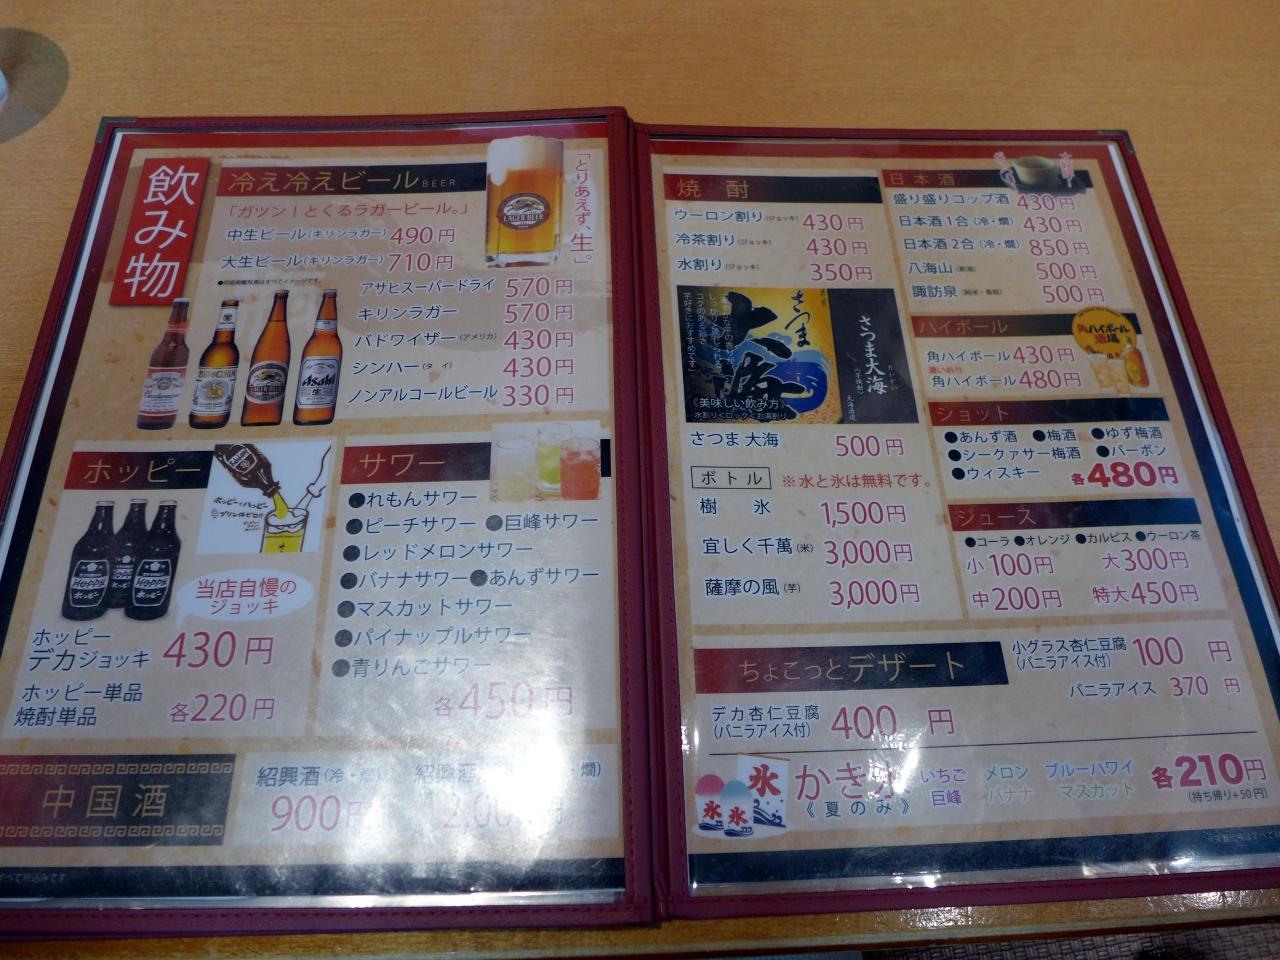 飲み物
冷え冷えビール BEER
「ガツン！とくるラガービール。」
中生ビール(キリンラガー) 490円
大生ビール(キリンラガー) 710円
「とりあえず、生。」
LAGER BEER
アサヒスーパードライ 570円
キリンラガー 570円
バドワイザー(アメリカ) 430円
シンハー(タイ) 430円
ノンアルコールビール 330円
Budweiser
SINGHA
LAGER BEER
Asahi
生
ホッピー
HOPPY
ホッピー
当店自慢の
ジョッキ
ホッピー
デカジョッキ 430円
ホッピー単品
焼酎単品 各220円
サワー
●れもんサワー
●ピーチサワー ●巨峰サワー
●レッドメロンサワー
●バナナサワー ●あんずサワー
●マスカットサワー
●パイナップルサワー
●青りんごサワー
各450円
中国酒
紹興酒(冷・燗)
900円
焼酎
ウーロン割り(ジョッキ) 430円
冷茶割り(ジョッキ) 430円
水割り(ジョッキ) 350円
さつま
大海
さつま大海
大海酒造
《美味しい飲み方》
水割り<ロック<お湯割り
さつま 大海 500円
ボトル ※水と氷は無料です。
樹氷 1,500円
宜しく千萬(米) 3,000円
薩摩の風(芋) 3,000円
日本酒
盛り盛りコップ酒 430円
日本酒1合(冷・燗) 430円
日本酒2合(冷・燗) 850円
八海山(新潟) 500円
諏訪泉(純米・鳥取) 500円
ハイボール
角ハイボール
酒場
角ハイボール 430円
濃いめ!!
角ハイボール 480円
ショット
●あんず酒 ●梅酒 ●ゆず梅酒
●シークァサー梅酒 ●バーボン
●ウィスキー 各480円
ジュース
●コーラ ●オレンジ ●カルピス ●ウーロン茶
小100円 大300円
中200円 特大450円
ちょこっとデザート
小グラス杏仁豆腐
(バニラアイス付) 100円
バニラアイス 370円
デカ杏仁豆腐
(バニラアイス付) 400円
氷
氷
氷
かき氷
《夏のみ》
いちご メロン ブルーハワイ
巨峰 バナナ マスカット
各210円
(持ち帰り+50円)